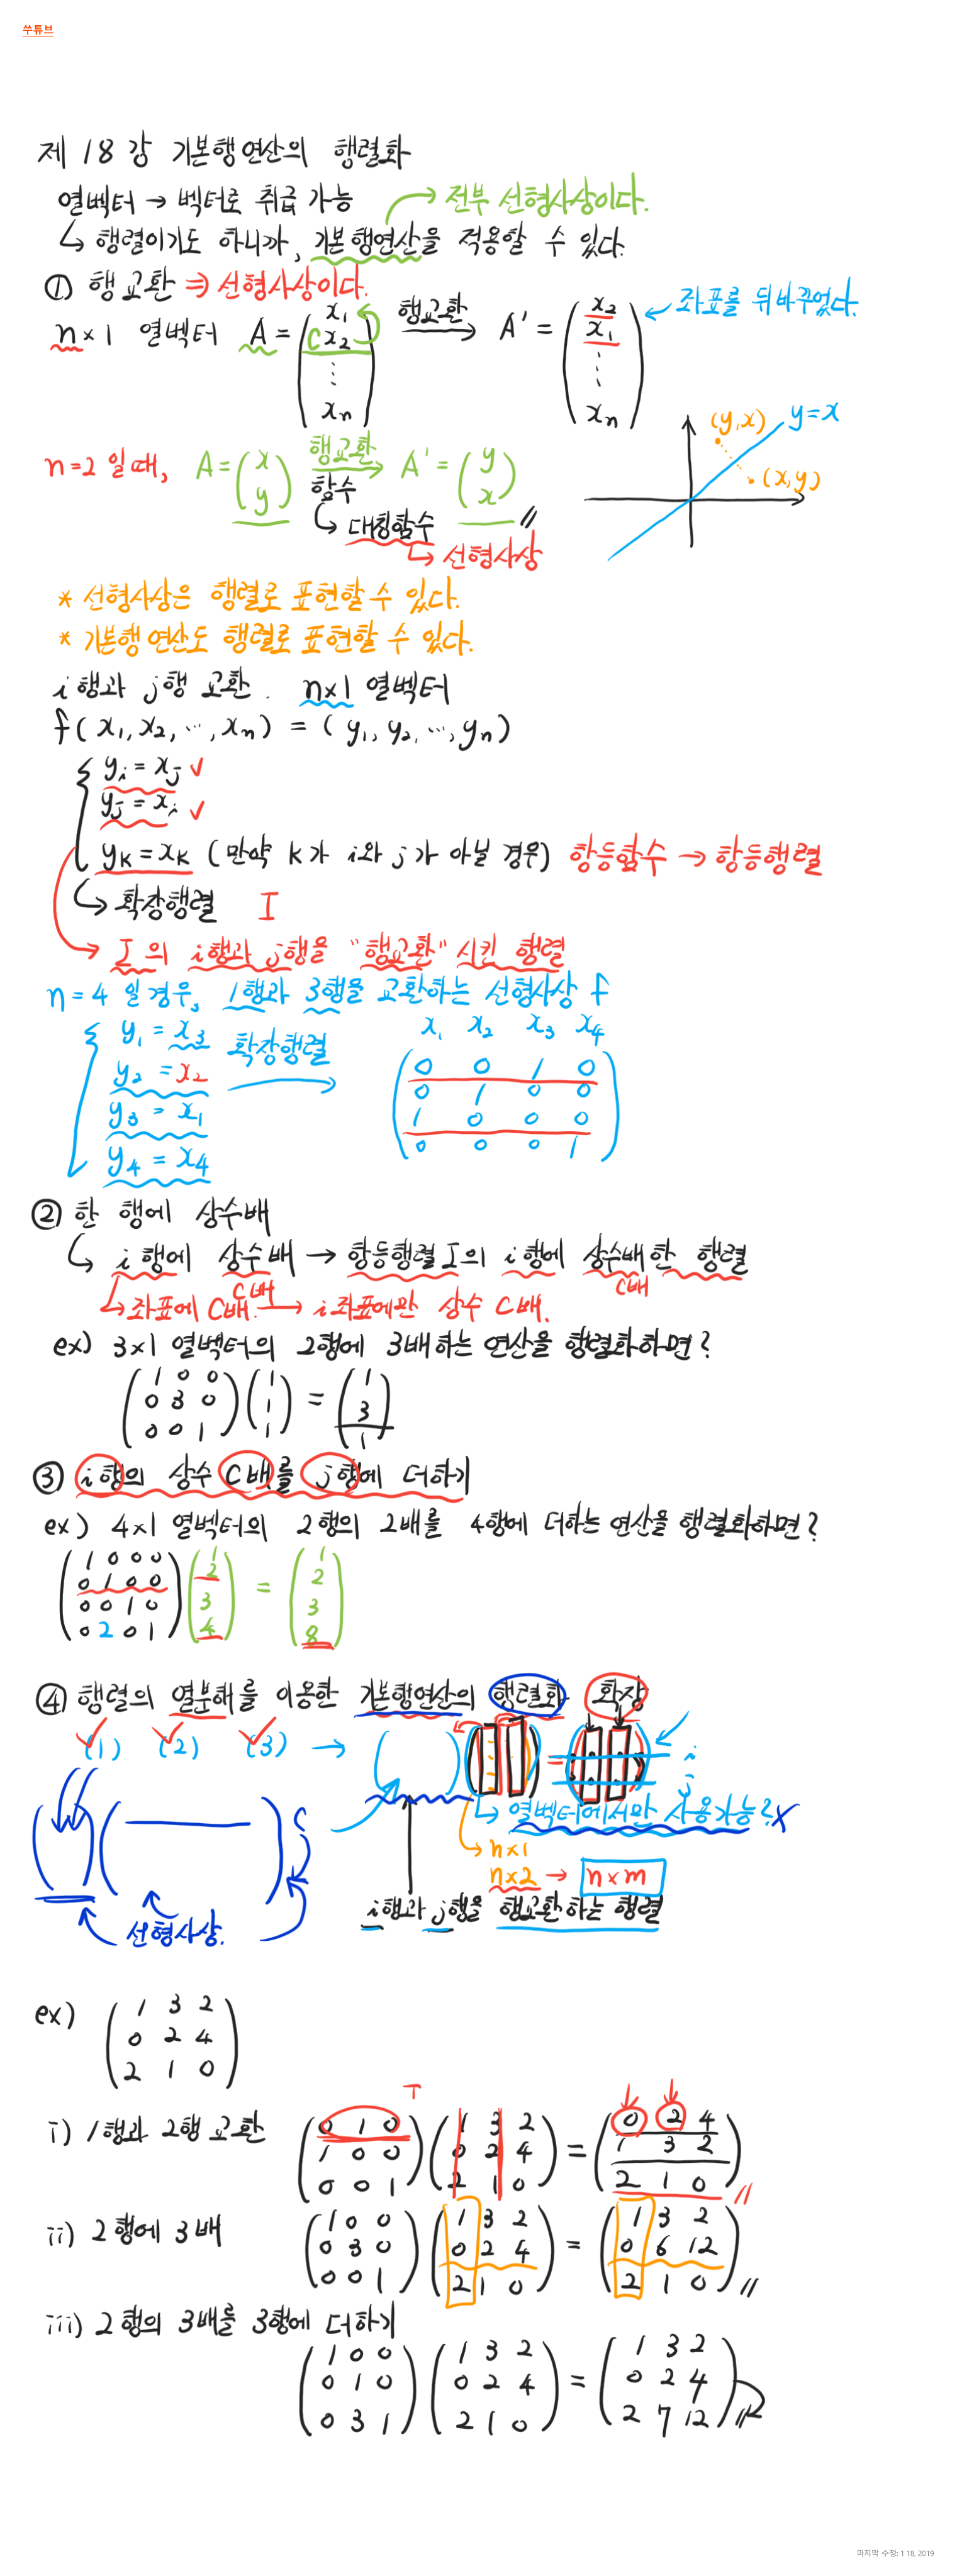 쑤튜브
제 18 강 기본행연산의 행렬화
열벡터 → 벡터로 취급 가능
전부 선형사상이다.
↳ 행렬이기도 하니까, 기본행연산을 적용할 수 있다.
① 행 교환 ⇒ 선형사상이다.
n×1 열벡터 A = (x₁ x₂ ⋮ xₙ) 행교환 → A' = (x₂ x₁ ⋮ xₙ) ← 좌표를 뒤바꾸었다.
n=2 일때, A = (x y) 행교환 → A' = (y x)
함수
↳ 대칭함수
↳ 선형사상
(y,x) y=x
(x,y)
* 선형사상은 행렬로 표현할 수 있다.
* 기본행 연산도 행렬로 표현할 수 있다.
i 행과 j행 교환. n×1 열벡터
f(x₁, x₂, ⋯, xₙ) = (y₁, y₂, ⋯, yₙ)
yᵢ = xⱼ ✓
yⱼ = xᵢ ✓
yₖ = xₖ (만약 k가 i와 j가 아닐 경우) 항등함수 → 항등행렬
↳ 확장행렬 I
→ I 의 i행과 j행을 "행교환" 시킨 행렬
n=4 일 경우, 1행과 3행을 교환하는 선형사상 f
y₁ = x₃ 확장행렬 → x₁ x₂ x₃ x₄
y₂ = x₂ 0 0 1 0
y₃ = x₁ 0 1 0 0
y₄ = x₄ 1 0 0 0
0 0 0 1
② 한 행에 상수배
↳ i 행에 상수배 → 항등행렬 I의 i 행에 상수배한 행렬
C배 C배
↳ 좌표에 C배. → i 좌표에만 상수 C배.
ex) 3×1 열벡터의 2행에 3배하는 연산을 행렬화하면?
(1 0 0) (1) = (1)
(0 3 0) (1) (3)
(0 0 1) (1) (1)
③ i행의 상수 C배를 j행에 더하기
ex) 4×1 열벡터의 2행의 2배를 4행에 더하는 연산을 행렬화하면?
(1 0 0 0) (1) = (1)
(0 1 0 0) (2) (2)
(0 0 1 0) (3) (3)
(0 2 0 1) (4) (8)
④ 행렬의 열분해를 이용한 기본행연산의 행렬화 확장
(1) (2) (3) →
i
j
↳ 열벡터에서만 사용가능? X
n×1
n×2 → n×m
i행과 j행을 행교환하는 행렬
선형사상.
ex) (1 3 2)
(0 2 4)
(2 1 0)
i) 1행과 2행 교환 (0 1 0) (1 3 2) = (0 2 4)
(1 0 0) (0 2 4) (1 3 2)
(0 0 1) (2 1 0) (2 1 0)
ii) 2행에 3배 (1 0 0) (1 3 2) = (1 3 2)
(0 3 0) (0 2 4) (0 6 12)
(0 0 1) (2 1 0) (2 1 0)
iii) 2행의 3배를 3행에 더하기
(1 0 0) (1 3 2) = (1 3 2)
(0 1 0) (0 2 4) (0 2 4)
(0 3 1) (2 1 0) (2 7 12)
마지막 수정: 1 18, 2019